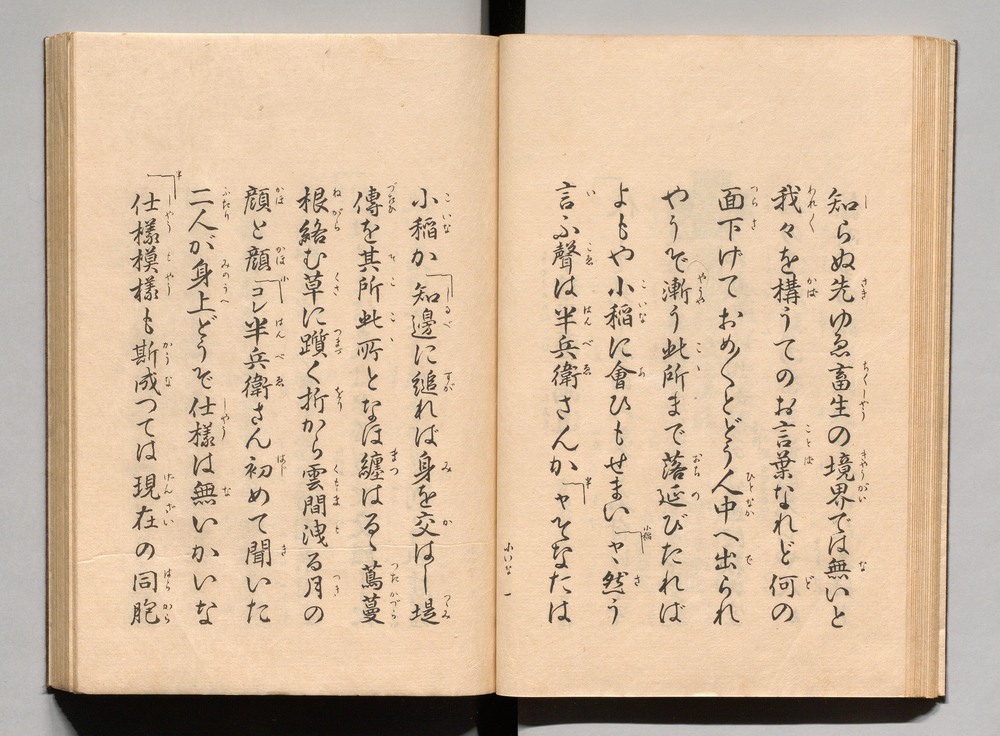 知らぬ先ゆゑ畜生の境界では無いと
我々を構うてのお言葉なれど何の
面下げておめ〳〵とどう人中へ出られ
やうぞ漸う此所まで落延びたれば
よもや小稲に會ひもせまい 小稲 ヤ然う
言ふ聲は半兵衛さんか 半 ヤそなたは
小いな 一
小稲か 知邊に縋れば身を交はし堤
傳を其所此所となほ纏はるゝ蔦蔓
根絡む草に躓く折から雲間洩る月の
顔と顔 小 コレ半兵衛さん初めて聞いた
二人が身上どうぞ仕様は無いかいな
半 仕様模様も斯成つては現在の同胞